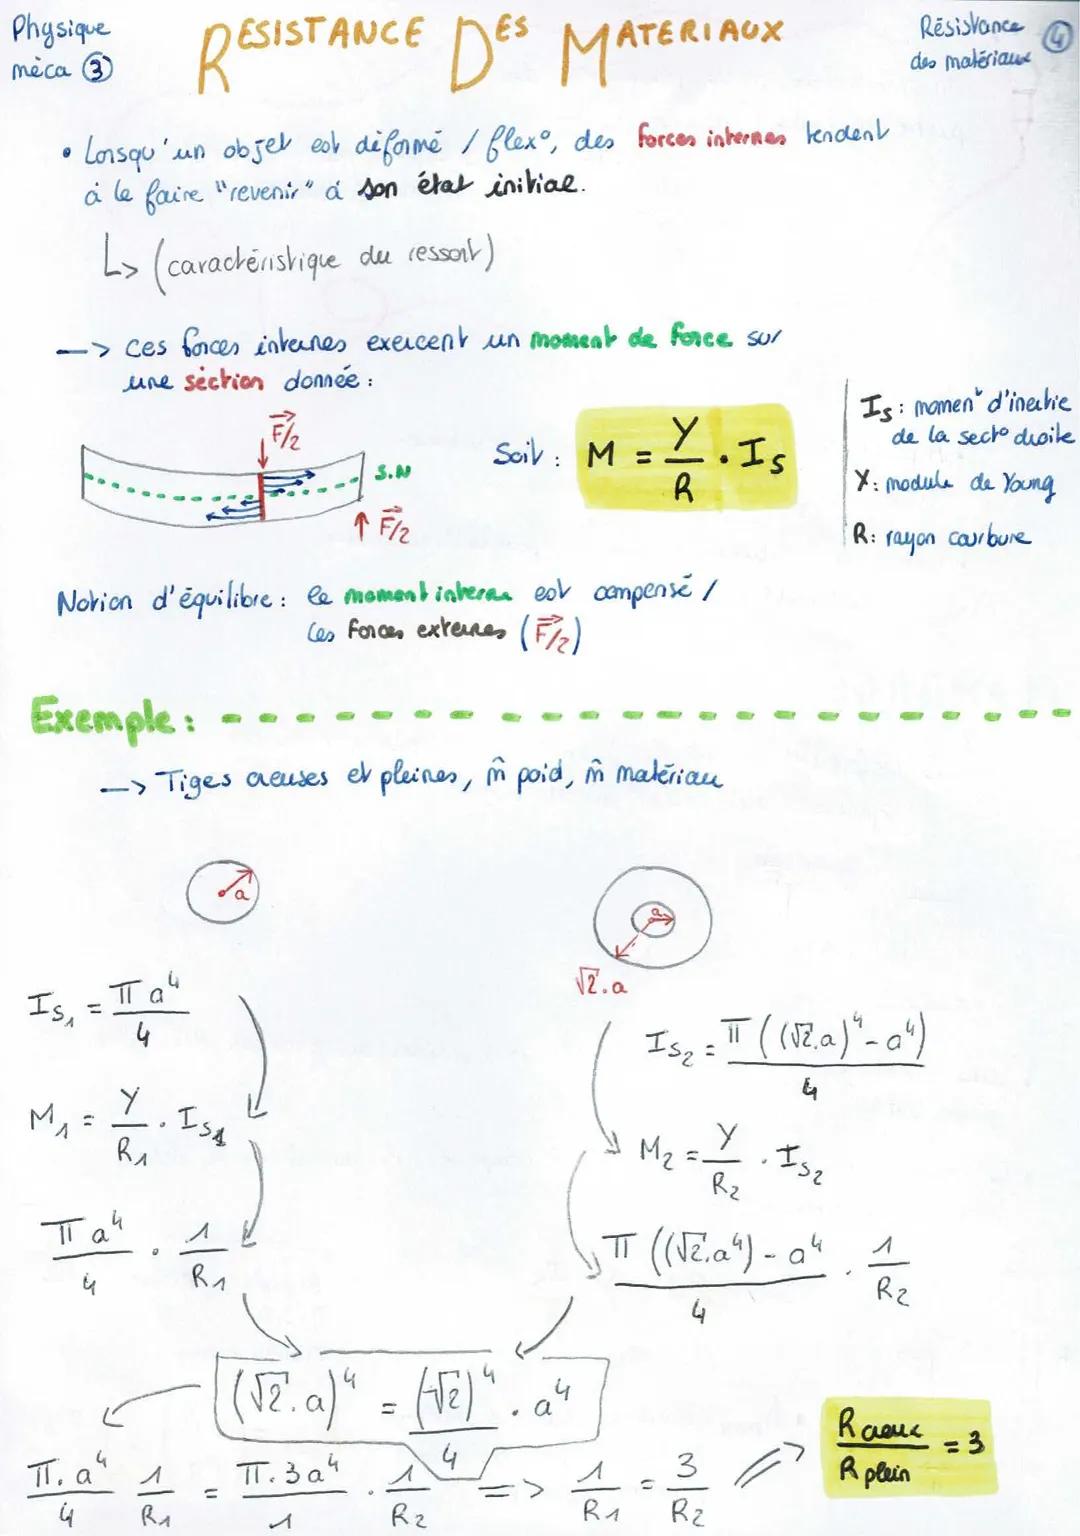 Physique
méca ③
RESISTANCE DES MATERIAUX
Résistance
des matériaux ④
• Lorsqu'un objet est déformé / flex°, des forces internes tendent
à le faire "revenir" à son état initial.
↳ (caractéristique du ressort)
—> ces forces internes exercent un moment de force sur
une section donnée :
F/2
S.N
F/2
Soit : M = Y/R . Is
Is : momen^t d'inertie
de la sect° droite
Y : module de Young
R : rayon courbure
Notion d'équilibre : le moment interne est compensé /
les forces externes (F/2)
Exemple :
—> Tiges creuses et pleines, m̂ poid, m̂ matériau
a
a
√2.a
Is₁ = πa⁴/4
Is₂ = π((√2.a)⁴ - a⁴)/4
M₁ = Y/R₁ . Is₁
M₂ = Y/R₂ . Is₂
πa⁴/4 . 1/R₁
π((√2.a⁴) - a⁴/4 . 1/R₂
(√2.a)⁴ = (√2)⁴/4 . a⁴
π.a⁴/4 1/R₁ = π.3a⁴/1 . 1/R₂ 4 => 1/R₁ = 3/R₂
R creux/R plein = 3